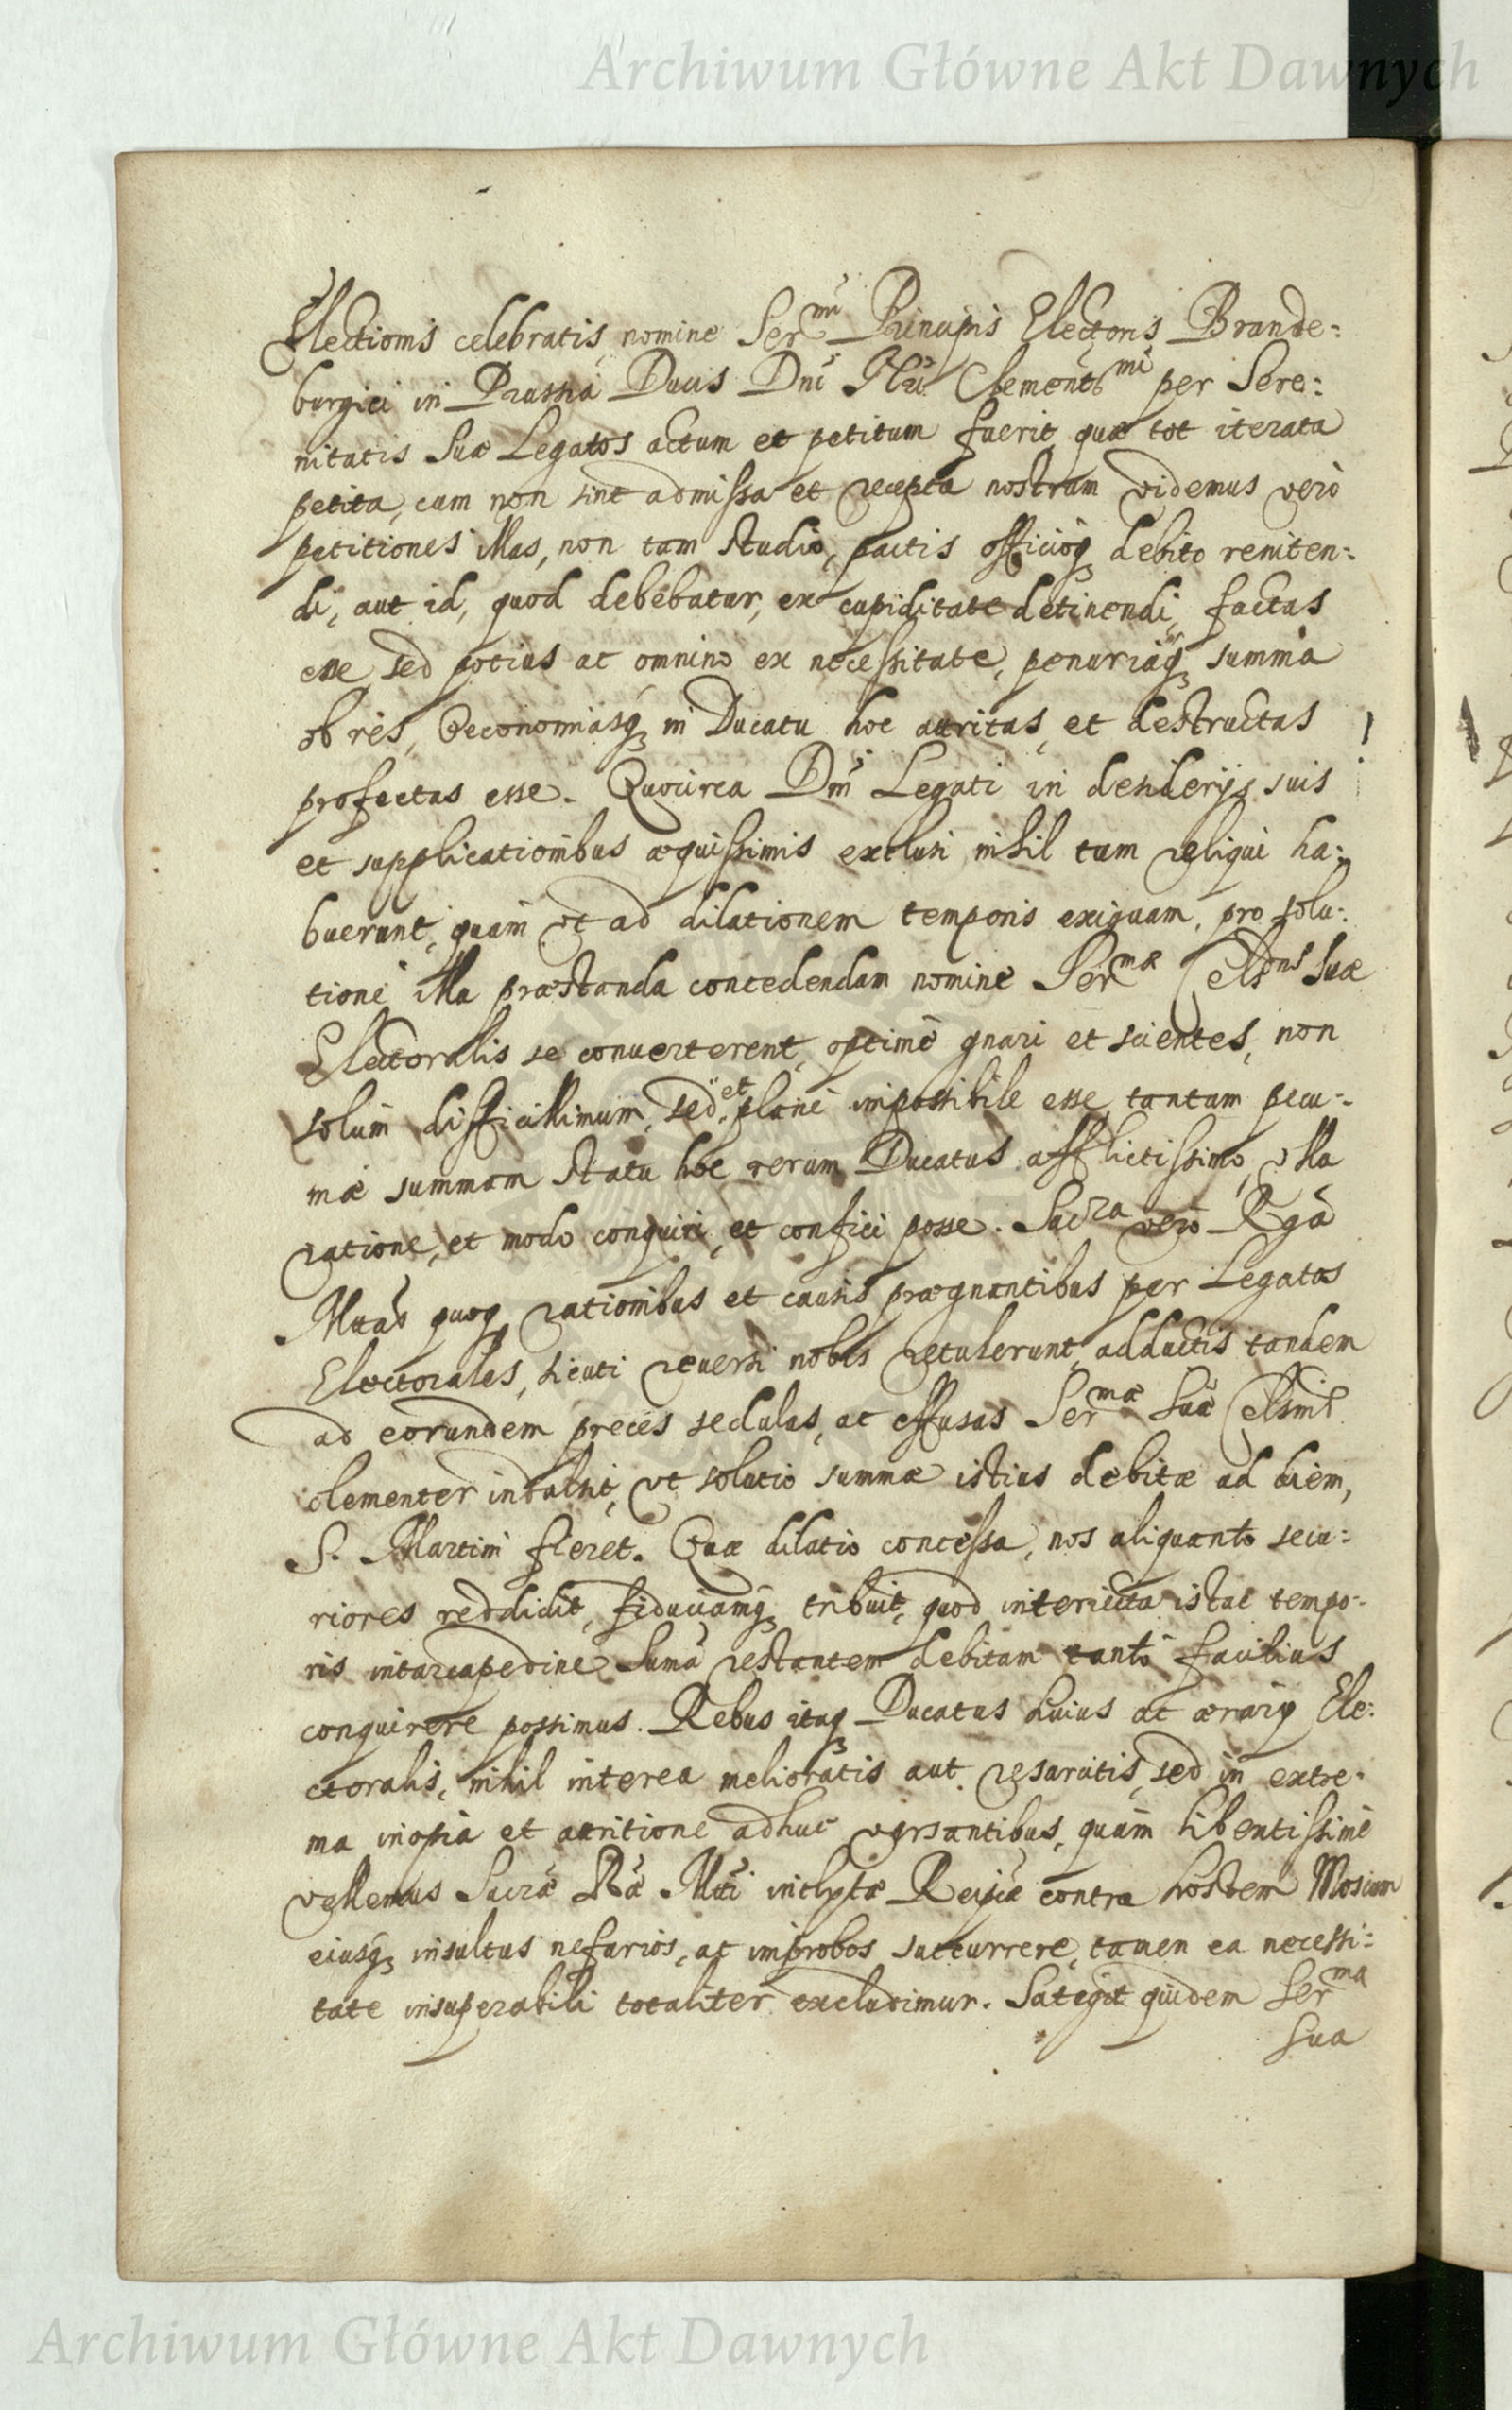 Archiwum Główne Akt Dawnych
Electionis celebratis, nomine Ser^mi Principis Electoris Brande:
burgici in Prussia Ducis Dnĩ Nrĩ Clementis^mi per Sere:
nitatis Suæ Legatos actum et petitum fuerit, quæ tot iterata
petita, cum non sint admissa et recepta nostram videmus verò
petitiones illas, non tam studio, pactis officioq debito reniten:
di, aut id, quod debebatur, ex cupiditate detinendi, factas
esse, sed potius ac omnino ex necessitate, penuriaq summa
ob res, Oeconomiasq in Ducatu hoc attritas, et destructas
profectas esse. Quocirca Dnĩ Legati in desiderijs suis
et supplicationibus æquissimis exclusi nihil tum reliqui ha:
buerunt, quam ut ad dilationem temporis exiguam, pro solu:
tione illa præstanda concedendam nomine Ser^mæ Cels^nis Suæ
Electoralis se converterent, optimè gnari et scientes, non
solum difficillimum, sed et planè impossibile esse, tantam pecu:
niæ summam statu hoc rerum Ducatus afflictissimo, ulla
ratione, et modo conquiri, et confici posse. Sacra verò Rgã
Mttas quoq rationibus et causis prægnantibus per Legatos
Electorales, sicuti reversi nobis retulerunt, adductis tandem
ad eorundem preces sedulas, ac effusas Ser^mæ Suæ Celsnis
clementer indulsit, ut solutio summæ istius debitæ ad diem,
S. Martini fieret. Quæ dilatio concessa, nos aliquanto secu:
riores reddidit, fiduciamq tribuit, quod interiecta istac tempo:
ris intercapedine Sumã restantem debitam tantò facilius
conquirere possimus. Rebus itaq Ducatus huius ac ærarij Ele:
ctoralis, nihil interea melioratis aut resarcitis, sed in extre:
ma inopia et attritione adhuc versantibus, quàm libentissimè
vellemus Sacræ Ræ Mtti inclytæ Reipcæ contra hostem Moscum
eiusq insultus nefarios, ac improbos succurrere, tamen ea necessi:
tate insuperabili totaliter excludimur. Sategit quidem Ser^ma
Sua
Archiwum Główne Akt Dawnych